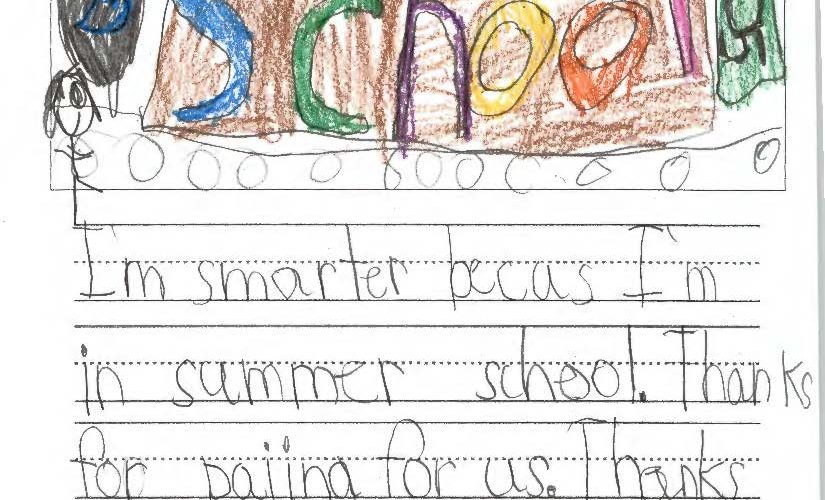 School
I'm smarter becus I'm
in summer school. Thanks
for paiing for us. Thanks